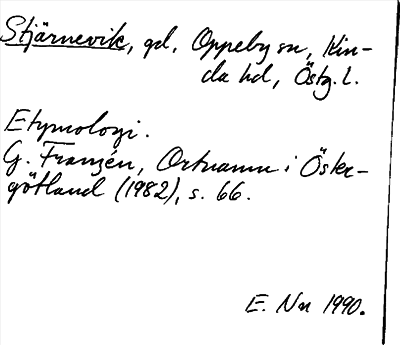 Stjärnevik, gd, Oppeby sn, Kin-
da hd, Östg. l.
Etymologi.
G. Franzén, Ortnamn i Öster-
götland (1982), s. 66.
E. Nn 1990.